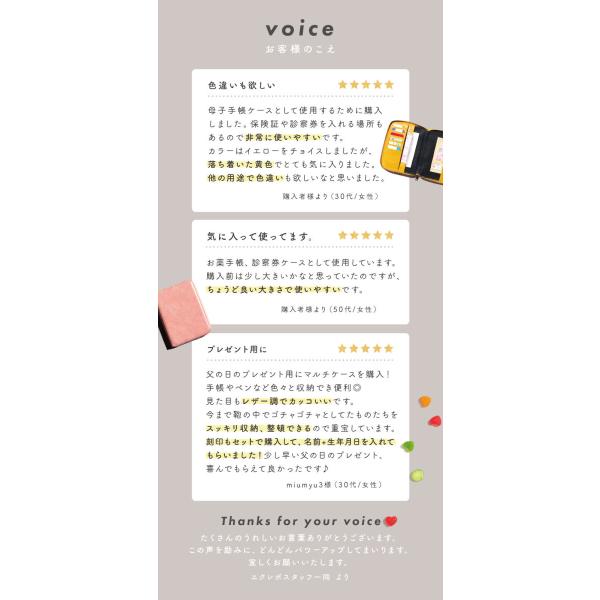 voice
お客様のこえ
色違いも欲しい ★★★★★
母子手帳ケースとして使用するために購入
しました。保険証や診察券を入れる場所も
あるので非常に使いやすいです。
カラーはイエローをチョイスしましたが、
落ち着いた黄色でとても気に入りました。
他の用途で色違いも欲しいなと思いました。
購入者様より(30代/女性)
気に入って使ってます。 ★★★★★
お薬手帳、診察券ケースとして使用しています。
購入前は少し大きいかなと思っていたのですが、
ちょうど良い大きさで使いやすいです。
購入者様より(50代/女性)
プレゼント用に ★★★★★
父の日のプレゼント用にマルチケースを購入!
手帳やペンなど色々と収納でき便利◎
見た目もレザー調でカッコいいです。
今まで鞄の中でゴチャゴチャとしてたものたちを
スッキリ収納、整頓できるので重宝しています。
刻印もセットで購入して、名前+生年月日を入れて
もらいました!少し早い父の日のプレゼント、
喜んでもらえて良かったです♪
miumyu3様(30代/女性)
Thanks for your voice
たくさんのうれしいお言葉ありがとうございます。
この声を励みに、どんどんパワーアップしてまいります。
宜しくお願いいたします。
エクレボスタッフ一同 より